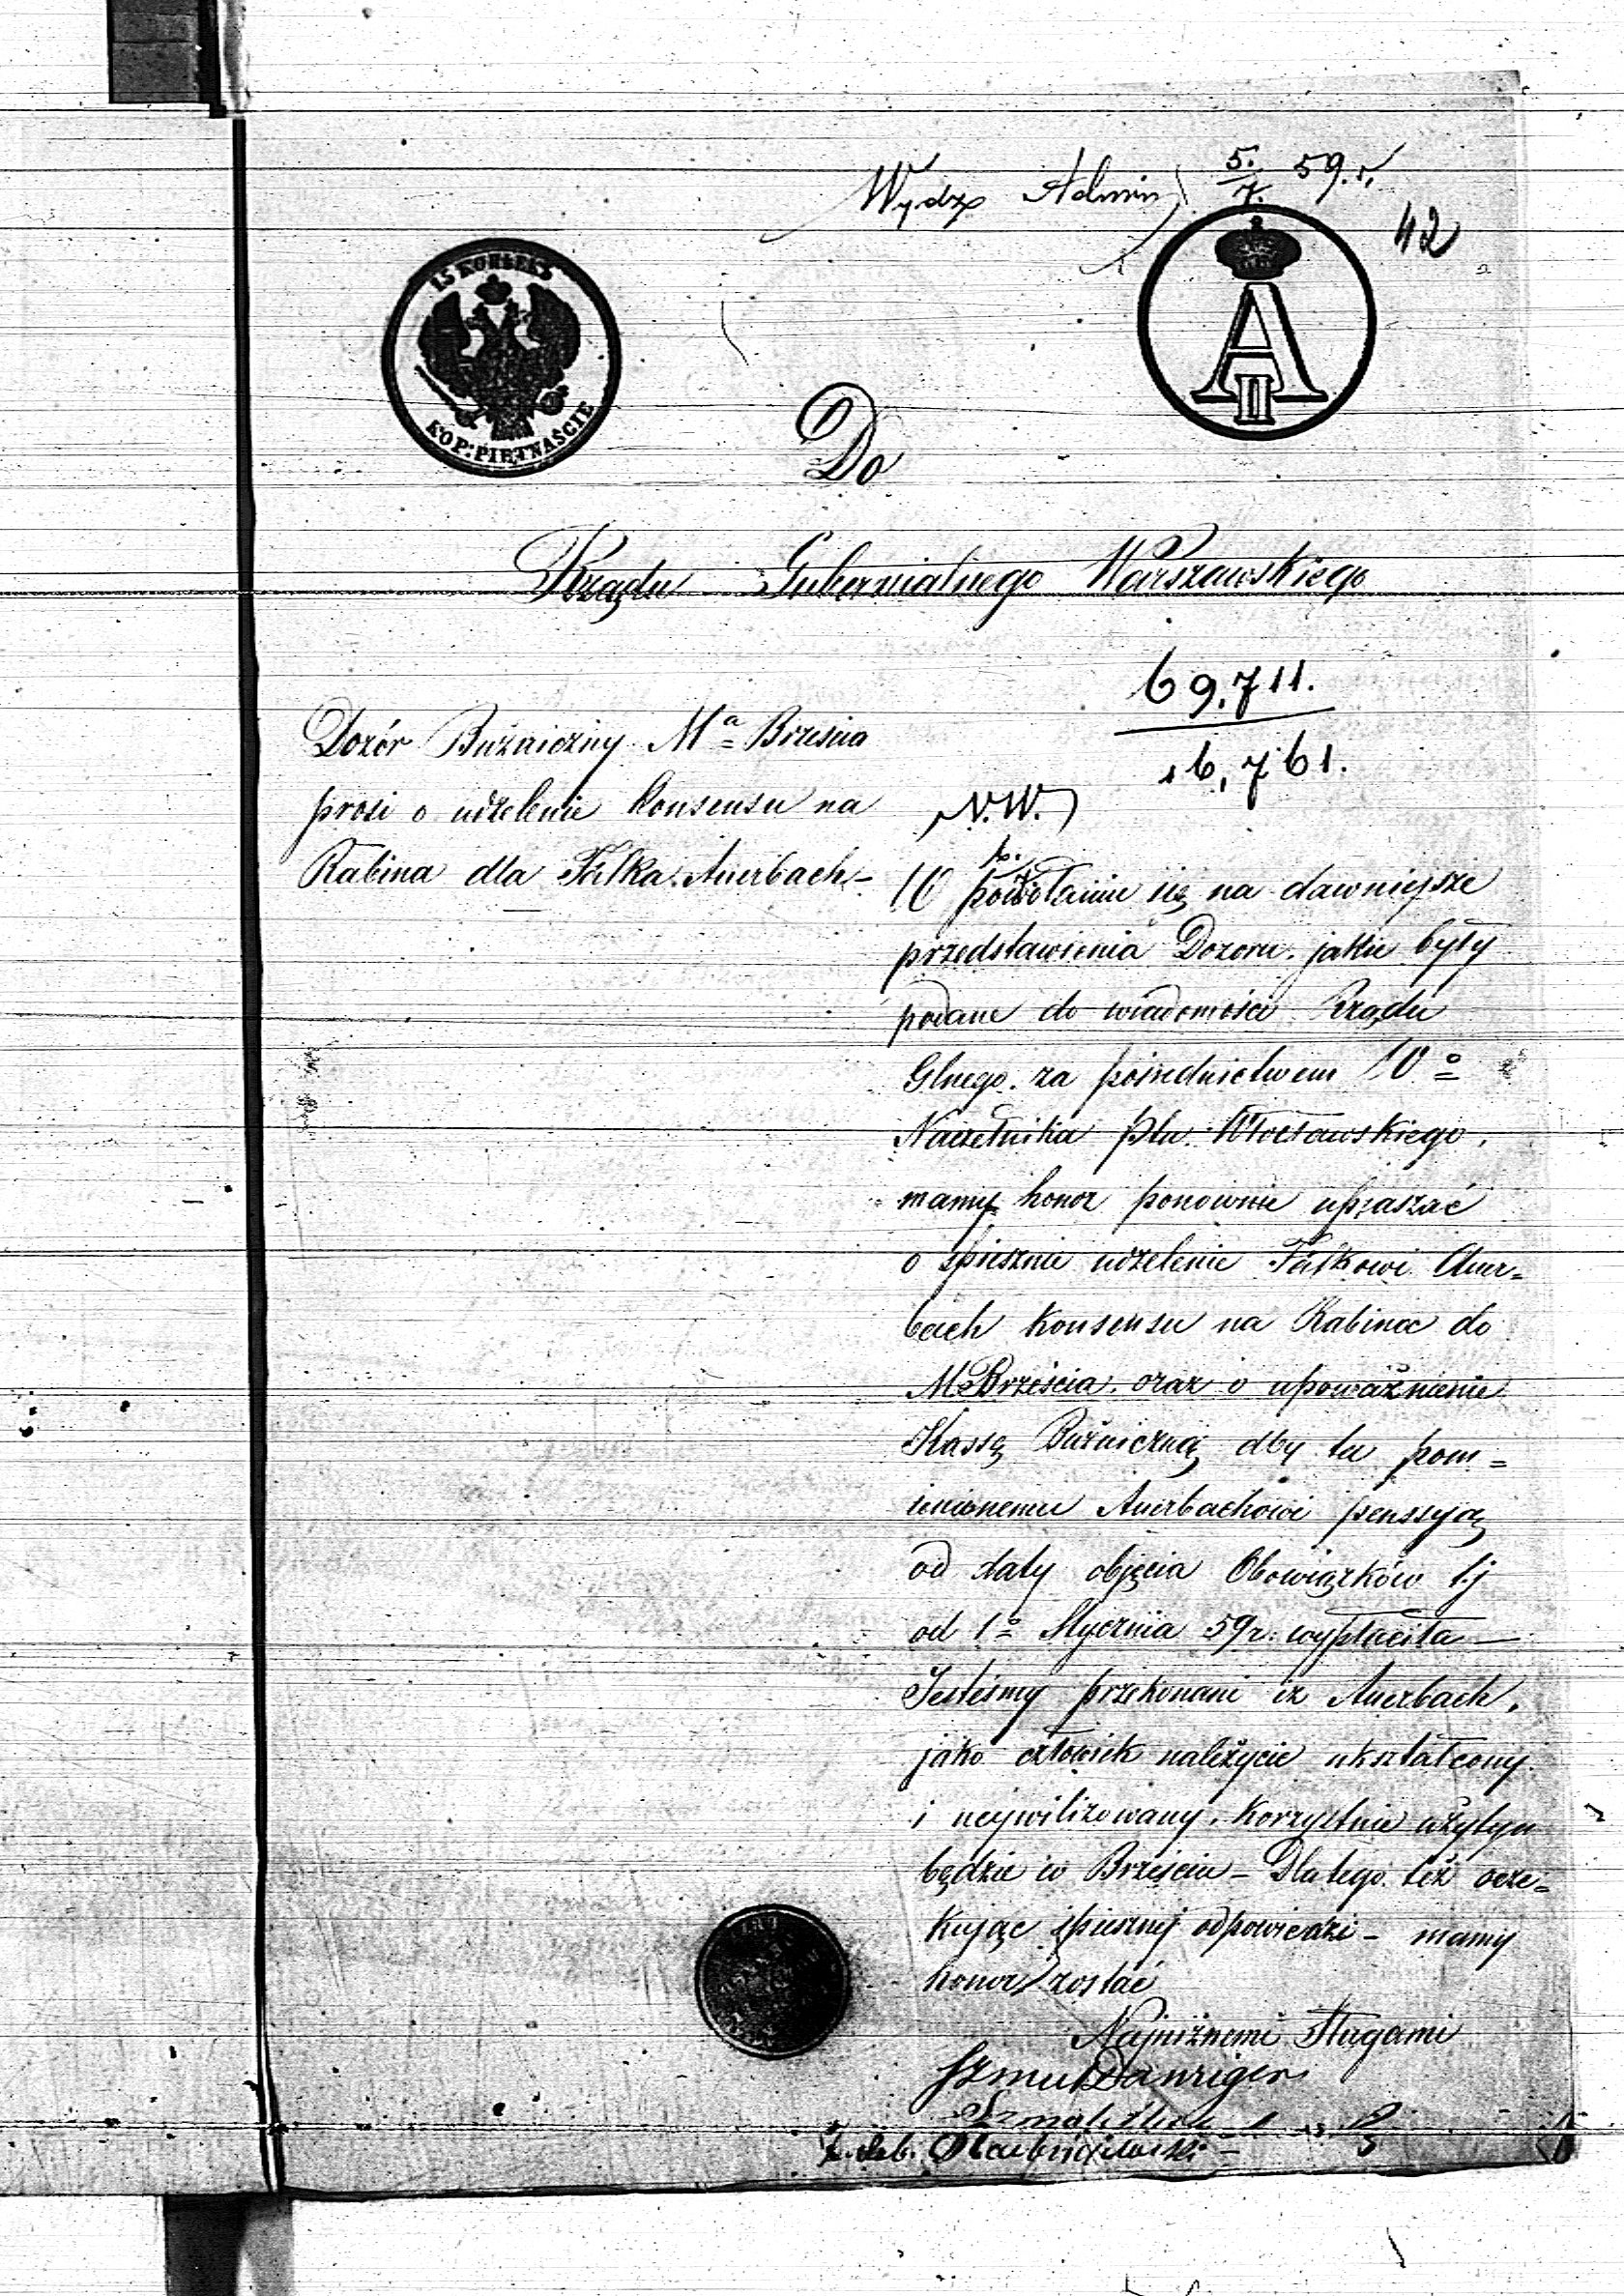 Wydz Admin 5./7. 59.r.
42
15 KOPEEKЪ
KOP: PIĘTNAŚCIE
A II
Do
Rządu Gubernialnego Warszawskiego
69,711.
16,761.
Dozór Bużniczny Mª Brześcia
prosi o udzelenie konsensu na
Rabina dla Falka Auerbach.-
N.W.
p.
W powołaniu się na dawniejsze
przedstawienia Dozoru. jakie były
podane do wiadomości Rządu
Glnego. za pośrednictwem Wº
Naczelnika Ptu. Włocławskiego.
mamy honor ponownie upraszać
o spieszne udzelenie Falkowi Auer=
bach konsensu na Rabina do
M. Brześcia. oraz o upoważnienie
Kassę Bużniczną aby ta pom=
ienionemu Auerbachowi penssyą
od daty objęcia Obowiązków t.j
od 1º Stycznia 59r. wypłaciła —
Jesteśmy przekonani iż Auerbach,
jako człowiek należycie ukształcony
i ucywilizowany. korzystnie użytym
będzie w Brześciu - Dlatego. też ocze=
kując spiesznej odpowiedzi - mamy
honor zostać
Najniżnemi Sługami
Szmul Danziger